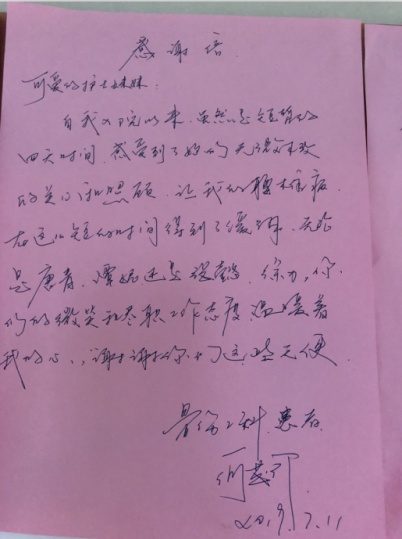 感谢信
可爱的护士妹妹:
自我入院以来,虽然是短暂的
四天时间,感受到了你们无微不致
的关心和照顾,让我的腰椎病
在这么短的时间得到了缓解,无论
是唐青、谭娟还是张,徐,你
们的微笑和尽职工作态度温暖着
我的心,谢谢谢谢你们这些天使
骨伤二科 患者
何
2019.7.11